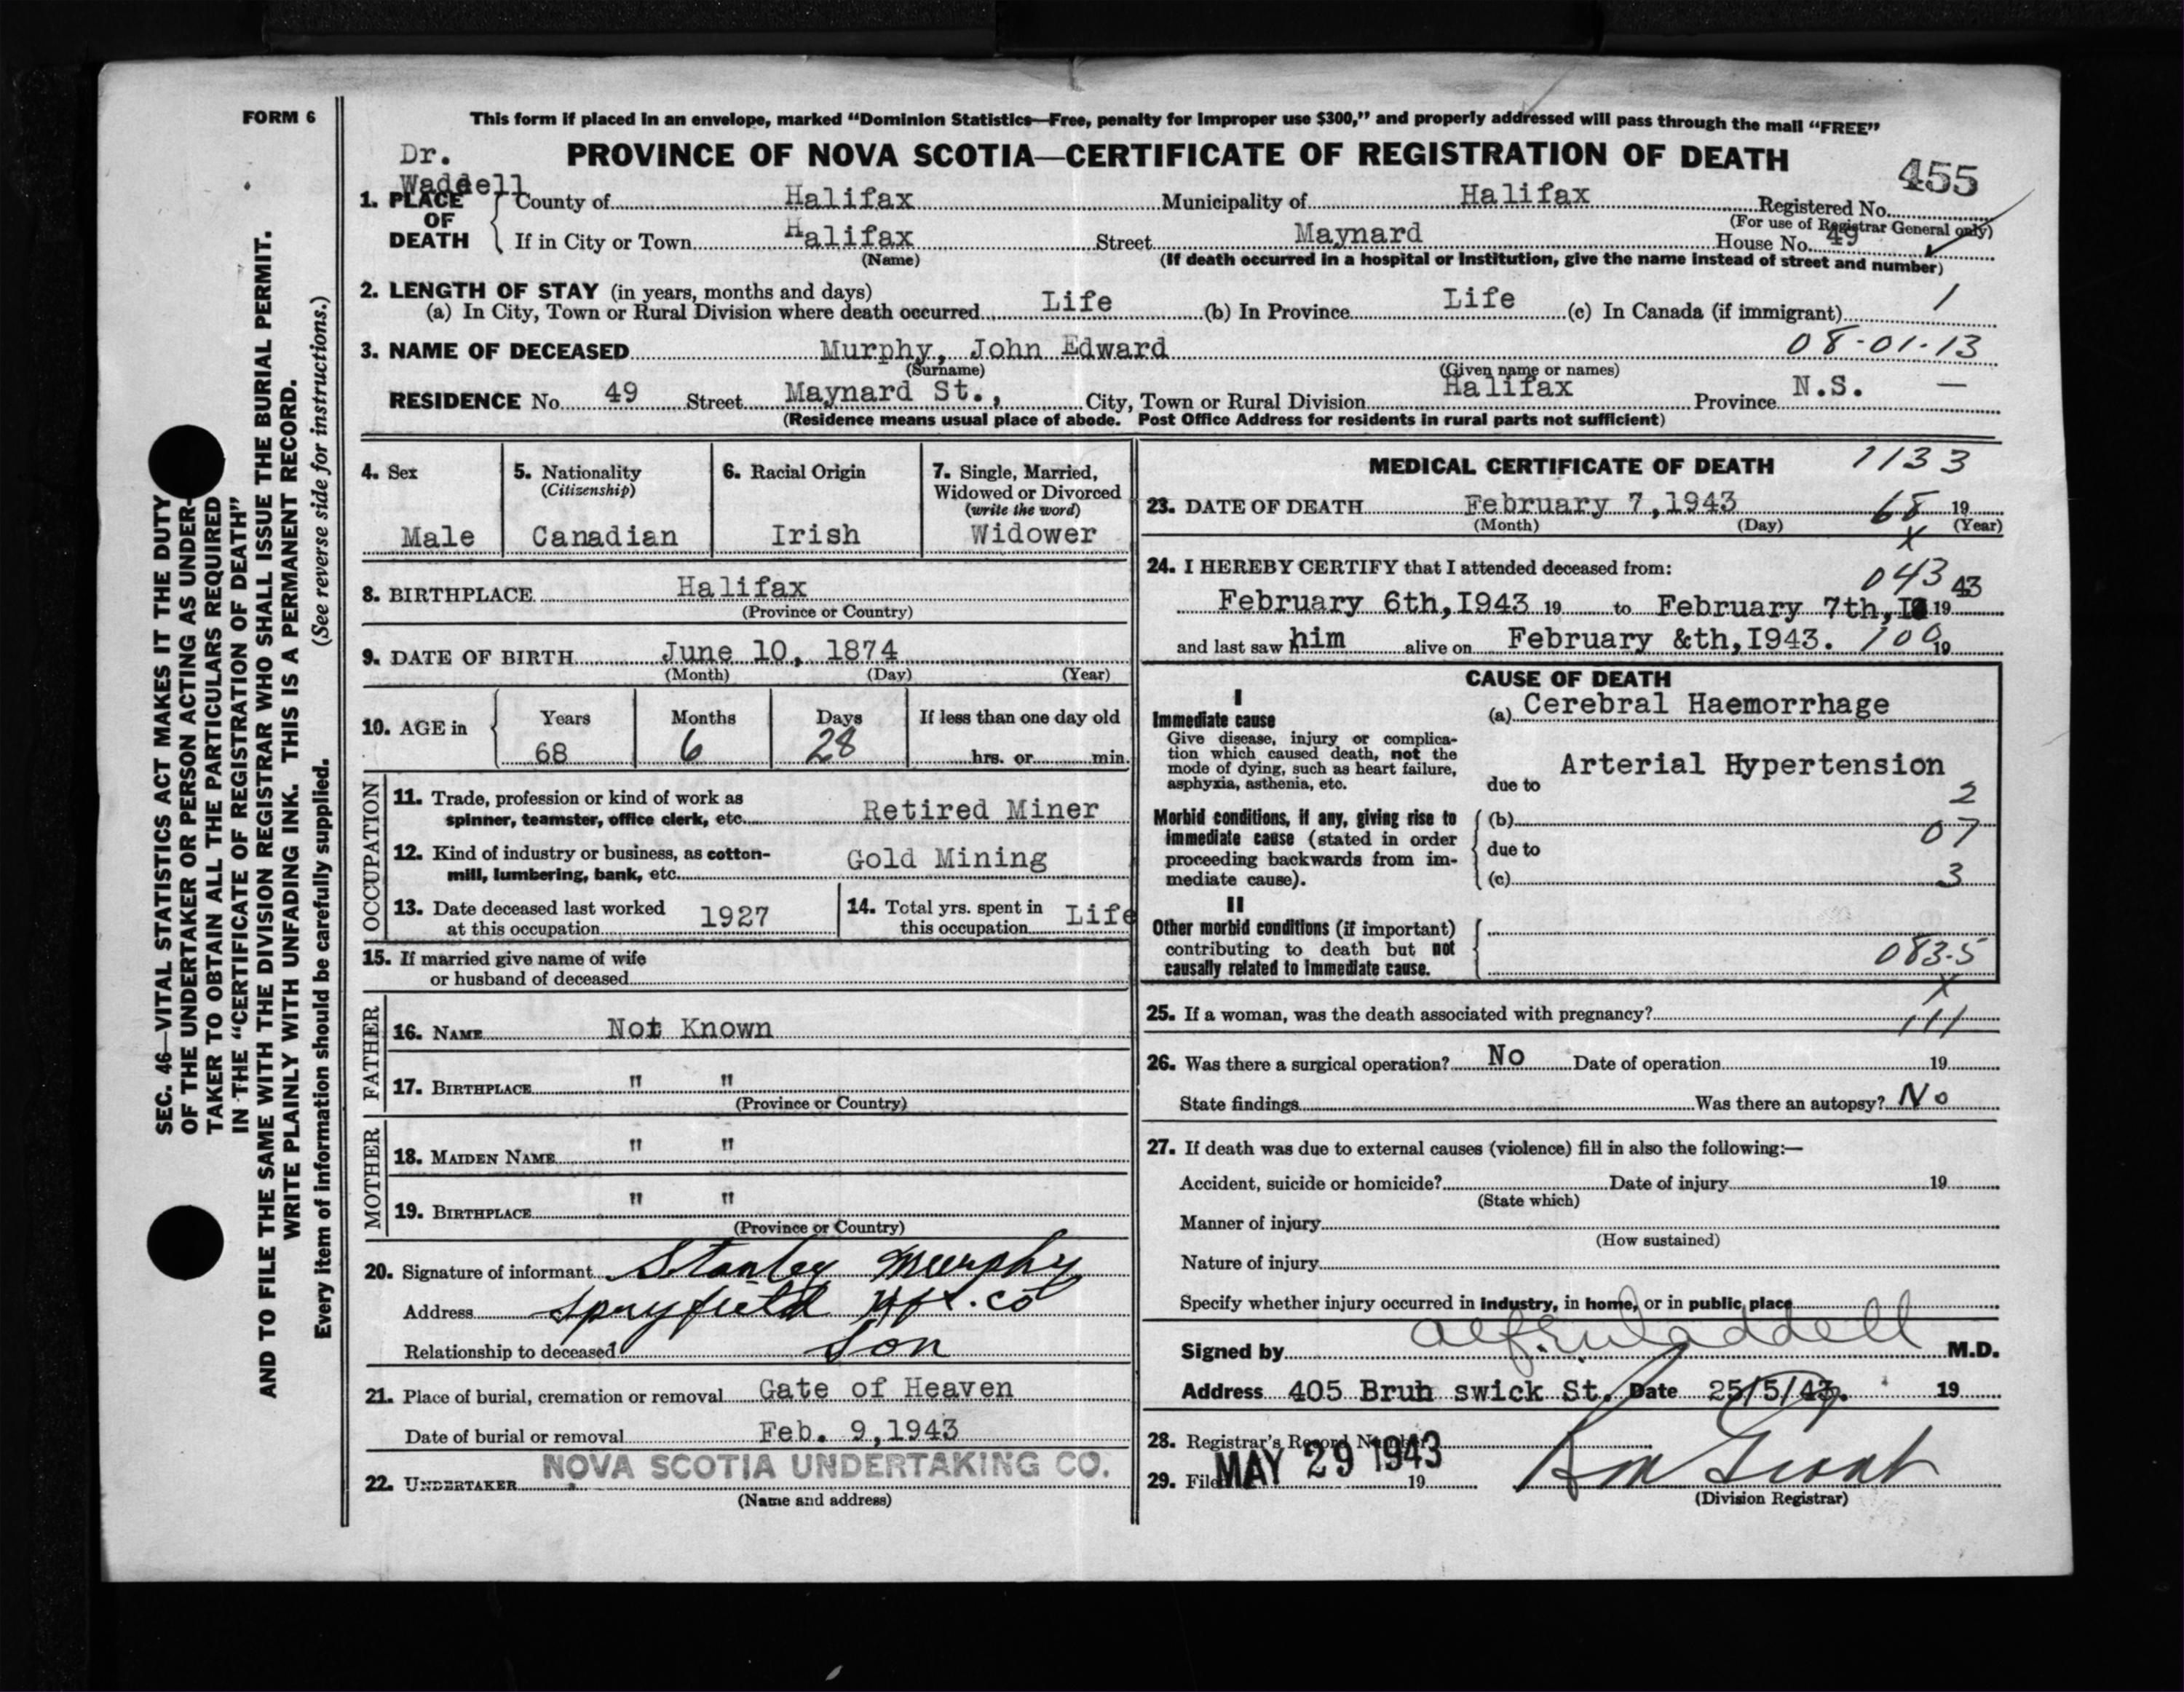 FORM 6
This form if placed in an envelope, marked “Dominion Statistics—Free, penalty for improper use $300,” and properly addressed will pass through the mail “FREE”
Dr.
Waddell
PROVINCE OF NOVA SCOTIA—CERTIFICATE OF REGISTRATION OF DEATH
455
1. PLACE OF DEATH
County of Halifax Municipality of Halifax Registered No.
(For use of Registrar General only)
If in City or Town Halifax Street Maynard House No. 49
(Name) (If death occurred in a hospital or institution, give the name instead of street and number)
2. LENGTH OF STAY (in years, months and days)
(a) In City, Town or Rural Division where death occurred Life (b) In Province Life (c) In Canada (if immigrant) 1
3. NAME OF DECEASED Murphy, John Edward 08-01-13
(Surname) (Given name or names)
RESIDENCE No. 49 Street Maynard St., City, Town or Rural Division Halifax Province N.S. —
(Residence means usual place of abode. Post Office Address for residents in rural parts not sufficient)
4. Sex
Male
5. Nationality
(Citizenship)
Canadian
6. Racial Origin
Irish
7. Single, Married,
Widowed or Divorced
(write the word)
Widower
8. BIRTHPLACE Halifax
(Province or Country)
9. DATE OF BIRTH June 10, 1874
(Month) (Day) (Year)
10. AGE in
Years Months Days If less than one day old
68 6 28 hrs. or min.
OCCUPATION
11. Trade, profession or kind of work as
spinner, teamster, office clerk, etc. Retired Miner
12. Kind of industry or business, as cotton-
mill, lumbering, bank, etc. Gold Mining
13. Date deceased last worked
at this occupation 1927
14. Total yrs. spent in
this occupation Life
15. If married give name of wife
or husband of deceased
FATHER
16. NAME Not Known
17. BIRTHPLACE " "
(Province or Country)
MOTHER
18. MAIDEN NAME " "
19. BIRTHPLACE " "
(Province or Country)
20. Signature of informant Stanley Murphy
Address Spryfield Hfx. Co
Relationship to deceased Son
21. Place of burial, cremation or removal Gate of Heaven
Date of burial or removal Feb. 9,1943
22. UNDERTAKER NOVA SCOTIA UNDERTAKING CO.
(Name and address)
MEDICAL CERTIFICATE OF DEATH 1133
23. DATE OF DEATH February 7,1943 68 19
(Month) (Day) (Year)
x
24. I HEREBY CERTIFY that I attended deceased from:
043
February 6th,I943 19 to February 7th,I 19 43
and last saw him alive on February &th,I943. 100 19
CAUSE OF DEATH
I
Immediate cause
Give disease, injury or complica-
tion which caused death, not the
mode of dying, such as heart failure,
asphyxia, asthenia, etc.
(a) Cerebral Haemorrhage
due to Arterial Hypertension
2
Morbid conditions, if any, giving rise to
immediate cause (stated in order
proceeding backwards from im-
mediate cause).
(b) 07
due to
(c) 3
II
Other morbid conditions (if important)
contributing to death but not
causally related to immediate cause.
083-5
x
25. If a woman, was the death associated with pregnancy? 111
26. Was there a surgical operation? No Date of operation 19
State findings Was there an autopsy? No
27. If death was due to external causes (violence) fill in also the following:—
Accident, suicide or homicide? Date of injury 19
(State which)
Manner of injury
(How sustained)
Nature of injury
Specify whether injury occurred in industry, in home, or in public place
Signed by Alf. E. Waddell M.D.
Address 405 Brun swick St. Date 25/5/43. 19
28. Registrar's Record Number
29. Filed MAY 29 1943 19
(Division Registrar)
SEC. 46—VITAL STATISTICS ACT MAKES IT THE DUTY
OF THE UNDERTAKER OR PERSON ACTING AS UNDER-
TAKER TO OBTAIN ALL THE PARTICULARS REQUIRED
IN THE “CERTIFICATE OF REGISTRATION OF DEATH”
AND TO FILE THE SAME WITH THE DIVISION REGISTRAR WHO SHALL ISSUE THE BURIAL PERMIT.
WRITE PLAINLY WITH UNFADING INK. THIS IS A PERMANENT RECORD.
Every item of information should be carefully supplied. (See reverse side for instructions.)